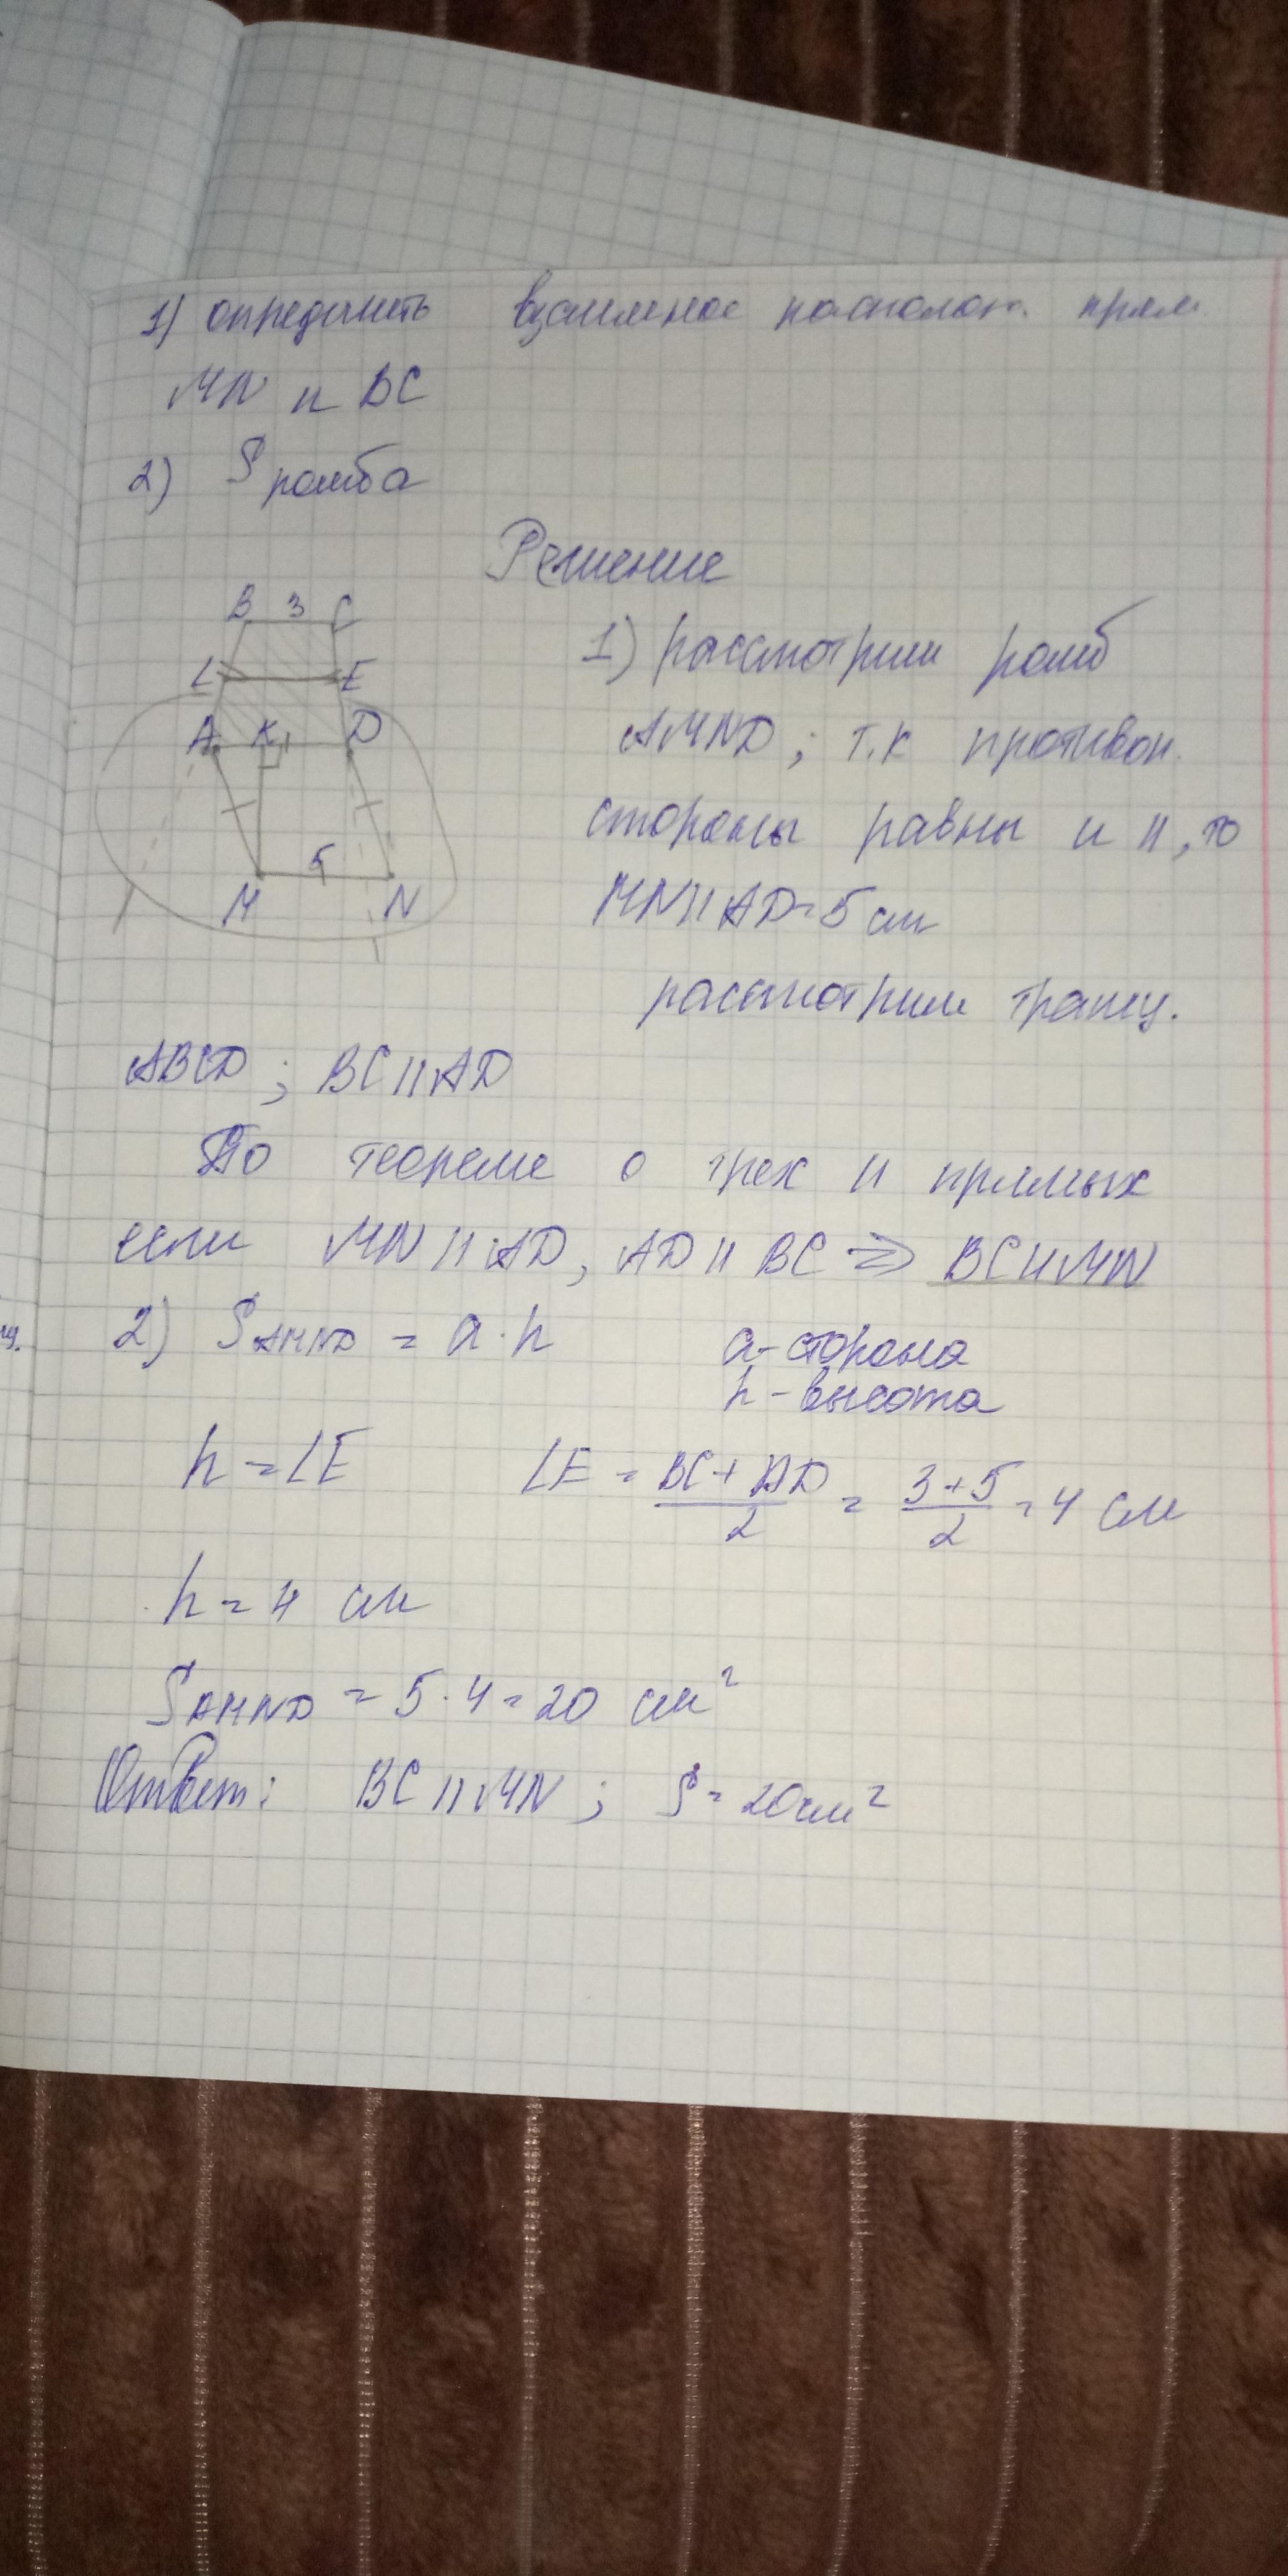 1) определить взаимное располож. прям.
MN и BC
2) S ромба
Решение
B 3 C
L E
A K D
5
M N
1) рассмотрим ромб
AMND; т.к противоп.
стороны равны и ||, то
MN || AD = 5 см
рассмотрим трапец.
ABCD; BC || AD
По теореме о трех || прямых
если MN || AD, AD || BC => BC || MN
2) S AMND = a · h
a - сторона
h - высота
h = LE LE = BC + AD / 2 = 3 + 5 / 2 = 4 см
h = 4 см
S AMND = 5 · 4 = 20 см²
Ответ: BC || MN; S = 20 см²